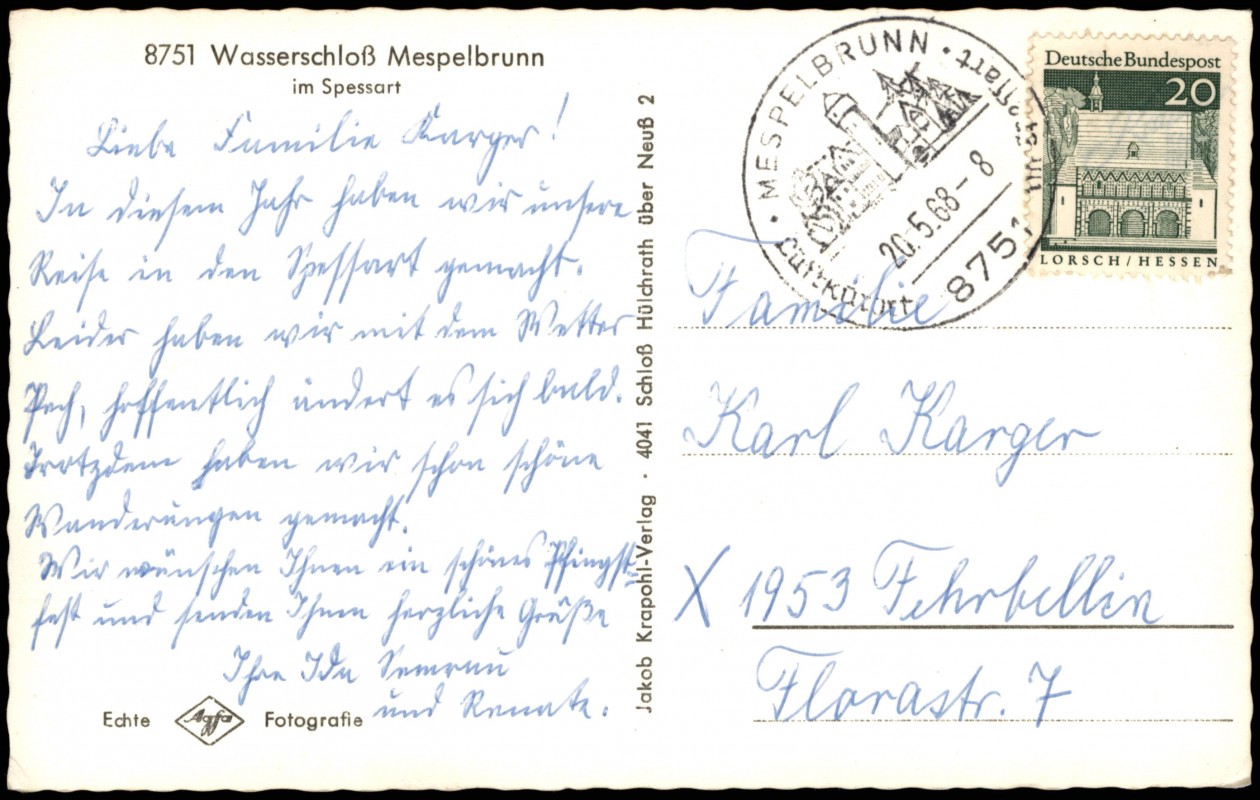 8751 Wasserschloß Mespelbrunn
im Spessart
Liebe Familie Karger!
In diesem Jahr haben wir unsere
Reise in den Spessart gemacht.
Leider haben wir mit dem Wetter
Pech, hoffentlich ändert es sich bald.
Trotzdem haben wir schon schöne
Wanderungen gemacht.
Wir wünschen Ihnen ein schönes Pfingst-
fest und senden Ihnen herzliche Grüße
Ihre Ida Semrau
und Renate.
Echte Agfa Fotografie
Jakob Krapohl-Verlag · 4041 Schloß Hülchrath über Neuß 2
· MESPELBRUNN ·
Luftkurort
im Spessart
20.5.68-8
8751
Deutsche Bundespost
20
LORSCH/HESSEN
Familie
Karl Karger
X 1953 Fehrbellin
Florastr. 7